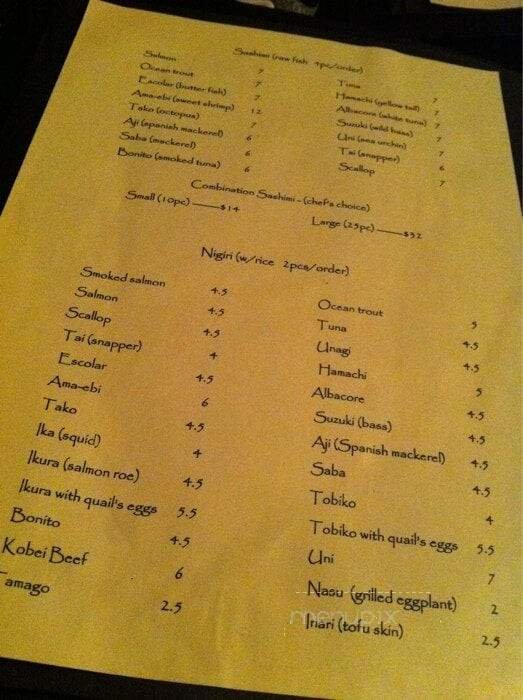 Sashimi (raw fish 4pc/order)
Salmon 7
Ocean trout 7
Escolar (butter fish) 7
Ama-ebi (sweet shrimp) 12
Tako (octopus) 7
Aji (spanish mackerel) 6
Saba (mackerel) 6
Bonito (smoked tuna) 6
Tuna 7
Hamachi (yellow tail) 7
Albacore (white tuna) 7
Suzuki (wild bass) 7
Uni (sea urchin) 7
Tai (snapper) 6
Scallop 7
Combination Sashimi - (chef's choice)
Small (10pc) ——$14 Large (25pc) ——$32
Nigiri (w/rice 2pcs/order)
Smoked salmon 4.5
Salmon 4.5
Scallop 4.5
Tai (snapper) 4
Escolar 4.5
Ama-ebi 6
Tako 4.5
Ika (squid) 4
Ikura (salmon roe) 4.5
Ikura with quail's eggs 5.5
Bonito 4.5
Kobei Beef 6
Tamago 2.5
Ocean trout 5
Tuna 4.5
Unagi 4.5
Hamachi 5
Albacore 4.5
Suzuki (bass) 4.5
Aji (Spanish mackerel) 4.5
Saba 4.5
Tobiko 4
Tobiko with quail's eggs 5.5
Uni 7
Nasu (grilled eggplant) 2
Inari (tofu skin) 2.5
menupix